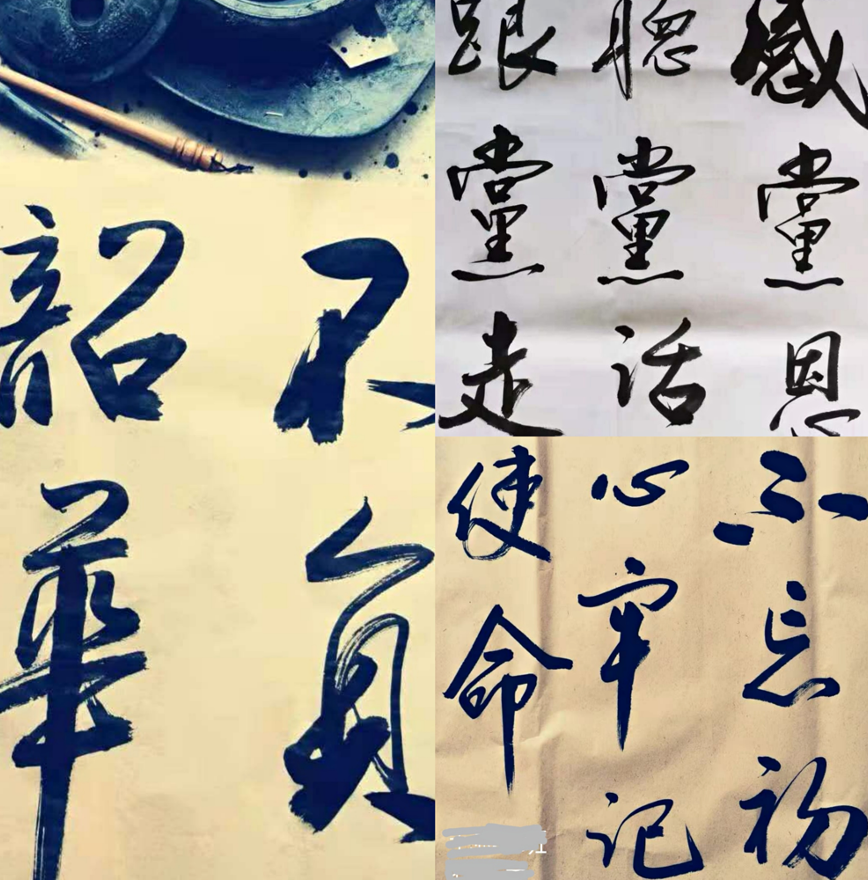 不負
韶華
感黨恩
聽黨話
跟黨走
不忘初
心牢记
使命